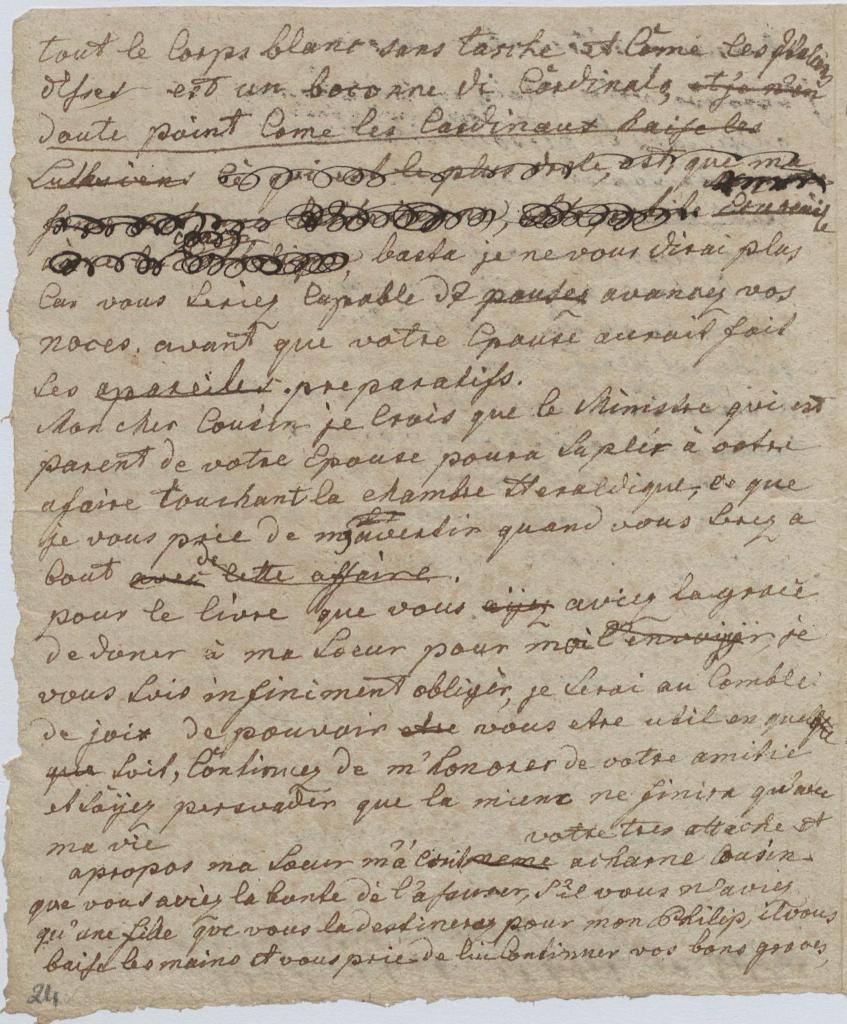 tout le Corps blanc sans tasche et Come les Italiens
disent est un boconne di Cardinale, et je n'en
doute point Come les Cardinaux baise les
Lutheriens Cè qui est le plus drole, est que ma
basta je ne vous dirai plus
Car vous seriez Capable de pouser avancez vos
noces. avant que votre Epouse auroit fait
ses apareiles. preparatifs.
Mon cher Cousin je Crois que le Ministre qui est
parent de votre Epouse poura suplér à votre
afaire touchant la chambre Heraldique, ce que
je vous prie de m'avertir quand vous serez a
bout avec de cette affaire.
pour le livre que vous aijez aviez la grace
de doner à ma Soeur pour moi l'envoijer, je
vous suis infiniment obligér, je serai au Comble
de joix de pouvoir etre vous etre util en quelque
que soit, Continuez de m'honorer de votre amitie
et soÿez persvadér que la mienc ne finira qu'avec
ma vie
votre tres attache et
apropos ma Soeur m'a Ecrit meme acharne Cousin.
que vous aviez la bonte de l'assurer, s'il vous n'aviez
qu'une fille que vous la destinerez pour mon Philip, il vous
baise les mains et vous prie de lui Continuer vos bons graces,
24